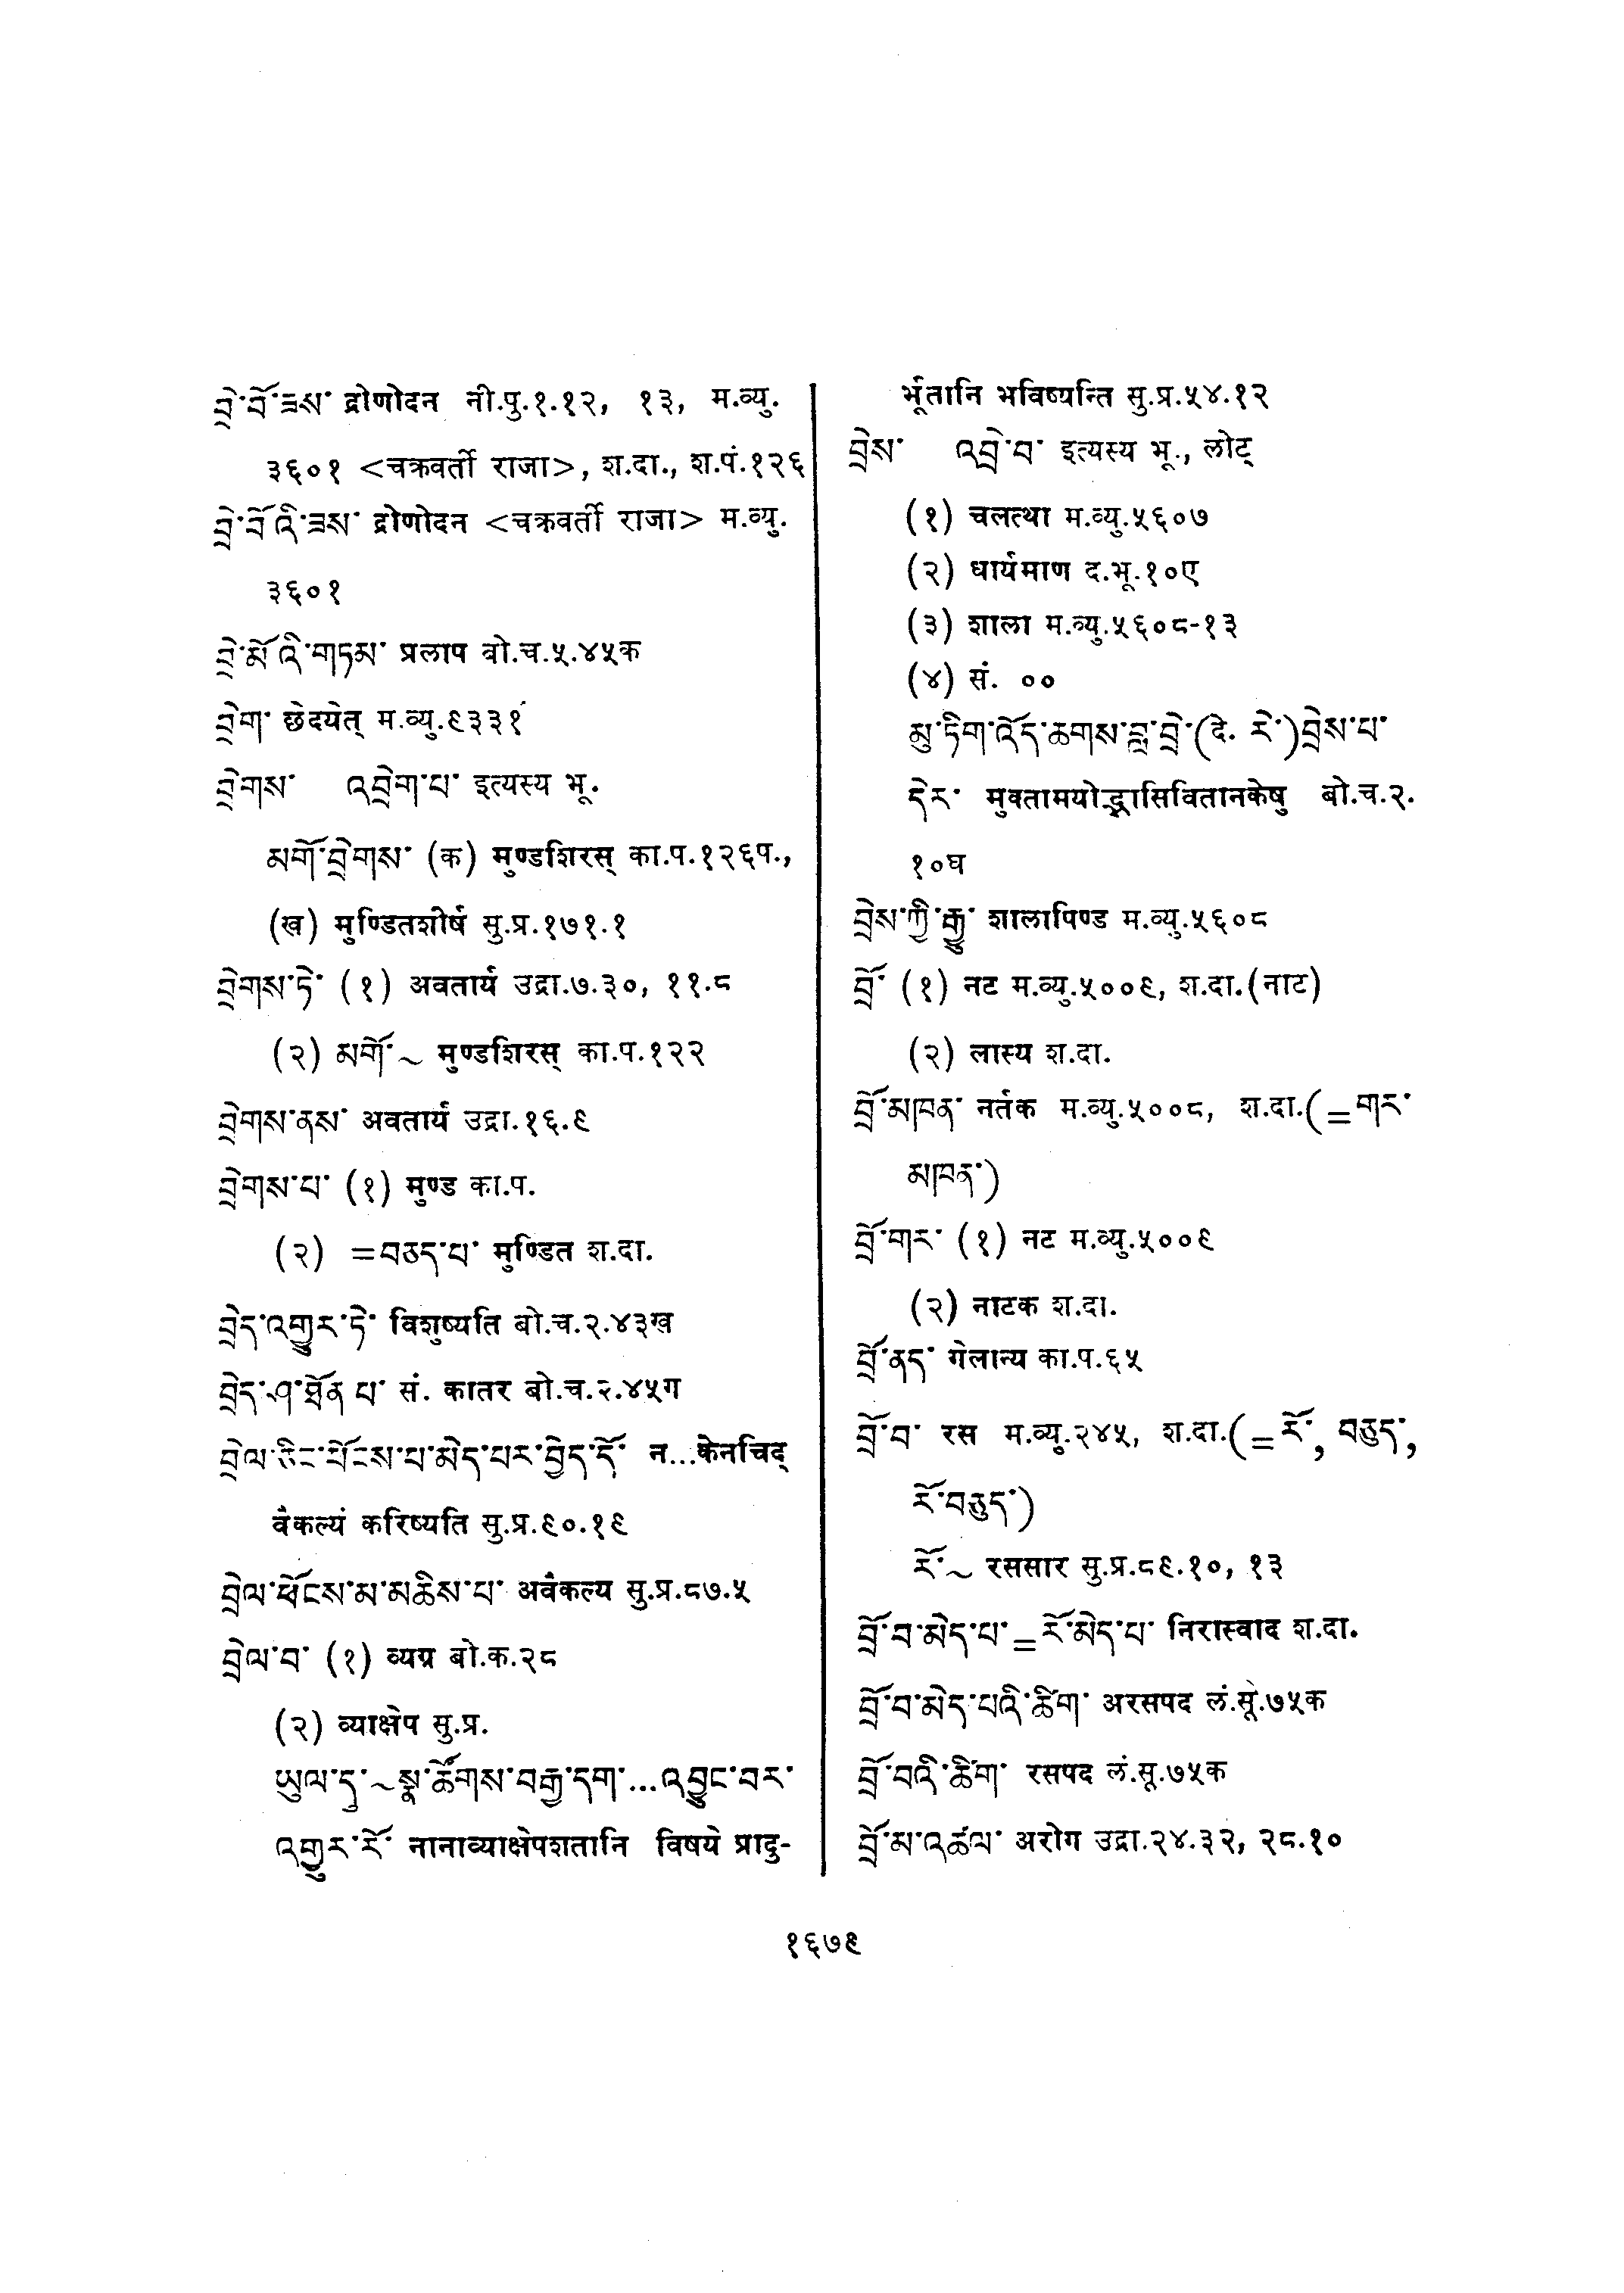 བྲེ་བོ་ཟས་ द्रोणोदन नी.पु.१.१२, १३, म.व्यु.
३६०१ <चक्रवर्ती राजा>, श.दा., श.पं.१२६
བྲེ་བོའི་ཟས་ द्रोणोदन <चक्रवर्ती राजा> म.व्यु.
३६०१
བྲེ་མོའི་གཏམ་ प्रलाप बो.च.५.४५क
བྲེག་ छेदयेत् म.व्यु.९३३१
བྲེགས་ འབྲེག་པ་ इत्यस्य भू.
མགོ་བྲེགས་ (क) मुण्डशिरस् का.प.१२६प.,
(ख) मुण्डितशीर्ष सु.प्र.१७१.१
བྲེགས་ཏེ་ (१) अवतार्य उद्रा.७.३०, ११.८
(२) མགོ་~ मुण्डशिरस् का.प.१२२
བྲེགས་ནས་ अवतार्य उद्रा.१६.९
བྲེགས་པ་ (१) मुण्ड का.प.
(२) =བཅད་པ་ मुण्डित श.दा.
བྲེད་འགྱུར་ཏེ་ विशुष्यति बो.च.२.४३ख
བྲེད་ཤ་ཐོན་པ་ सं. कातर बो.च.२.४५ग
བྲེལ་ཞིང་ཕོངས་པ་མེད་པར་བྱེད་དོ་ न...केनचिद्
वैकल्यं करिष्यति सु.प्र.९०.१९
བྲེལ་ཕོངས་མ་མཆིས་པ་ अवैकल्य सु.प्र.८७.५
བྲེལ་བ་ (१) व्यग्र बो.क.२८
(२) व्याक्षेप सु.प्र.
ཡུལ་དུ་~སྣ་ཚོགས་བརྒྱ་དག་...འབྱུང་བར་
འགྱུར་རོ་ नानाव्याक्षेपशतानि विषये प्रादु-
र्भूतानि भविष्यन्ति सु.प्र.५४.१२
བྲེས་ འབྲེ་བ་ इत्यस्य भू., लोट्
(१) चलत्था म.व्यु.५६०७
(२) धार्यमाण द.भू.१०ए
(३) शाला म.व्यु.५६०८-१३
(४) सं. ००
མུ་ཏིག་འོད་ཆགས་བླ་བྲེ་(दे. རེ་)བྲེས་པ་
དེར་ मुक्तामयोद्भासिवितानकेषु बो.च.२.
१०घ
བྲེས་ཀྱི་རྒྱུ་ शालापिण्ड म.व्यु.५६०८
བྲོ་ (१) नट म.व्यु.५००९, श.दा.(नाट)
(२) लास्य श.दा.
བྲོ་མཁན་ नर्तक म.व्यु.५००८, श.दा.(=གར་
མཁན་)
བྲོ་གར་ (१) नट म.व्यु.५००९
(२) नाटक श.दा.
བྲོ་ནད་ गेलान्य का.प.६५
བྲོ་བ་ रस म.व्यु.२४५, श.दा.(=རོ་, བཅུད་,
རོ་བཅུད་)
རོ་~ रससार सु.प्र.८९.१०, १३
བྲོ་བ་མེད་པ་=རོ་མེད་པ་ निरास्वाद श.दा.
བྲོ་བ་མེད་པའི་ཚིག་ अरसपद लं.सू.७५क
བྲོ་བའི་ཚིག་ रसपद लं.सू.७५क
བྲོ་མ་འཚལ་ अरोग उद्रा.२४.३२, २८.१०
१६७९